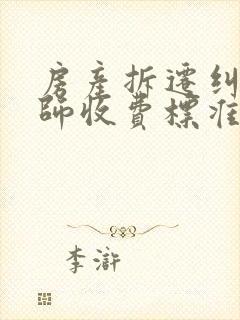 房產拆遷糾
師收費標准
李滸